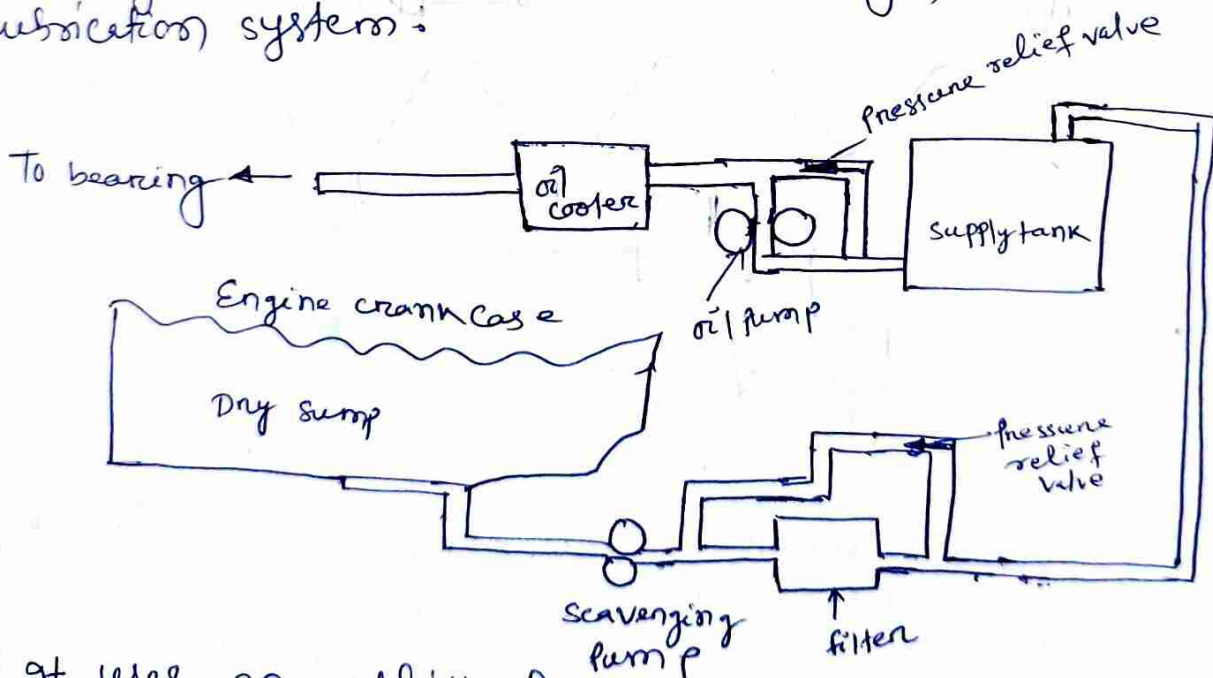 lubrication system.
Pressure relief valve
To bearing
oil
cooler
Supply tank
oil pump
Engine crank case
Dry sump
Pressure
relief
valve
Scavenging
Pump
filter